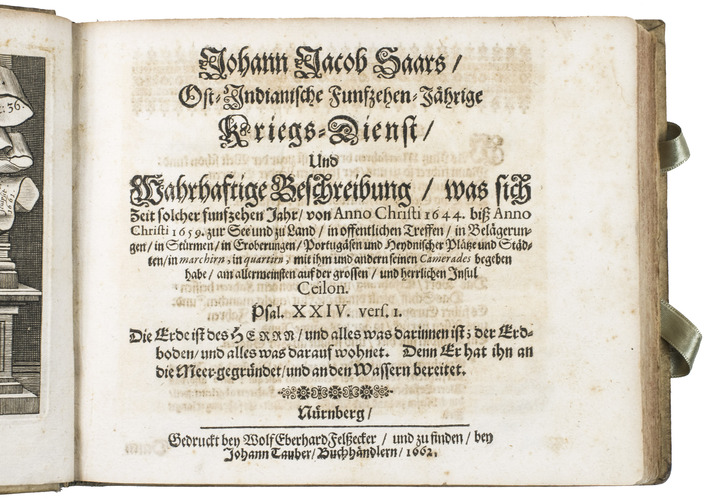 : 36.
Johann Jacob Saars /
Ost-Indianische Funfzehen-Jährige
Kriegs-Dienst /
Und
Wahrhafftige Beschreibung / was sich
Zeit solcher funfzehen Jahr / von Anno Christi 1644. biß Anno
Christi 1659. zur See und zu Land / in offentlichen Treffen / in Belägerun-
gen / in Stürmen / in Eroberungen / Portugäsen und Heydnischer Plätze und Städ-
ten / in marchirn, in quartirn, mit ihm und andern seinen Camerades begeben
habe / am allermeinsten auf der grossen / und herrlichen Insul
Ceilon.
Psal. XXIV. vers. 1.
Die Erde ist des HERRN / und alles was darinnen ist; der Erd-
boden / und alles was darauf wohnet. Denn Er hat ihn an
die Meer gegründet / und an den Wassern bereitet.
Nürnberg /
Gedruckt bey Wolf Eberhard Felßecker / und zu finden / bey
Johann Tauber / Buchhändlern / 1662.